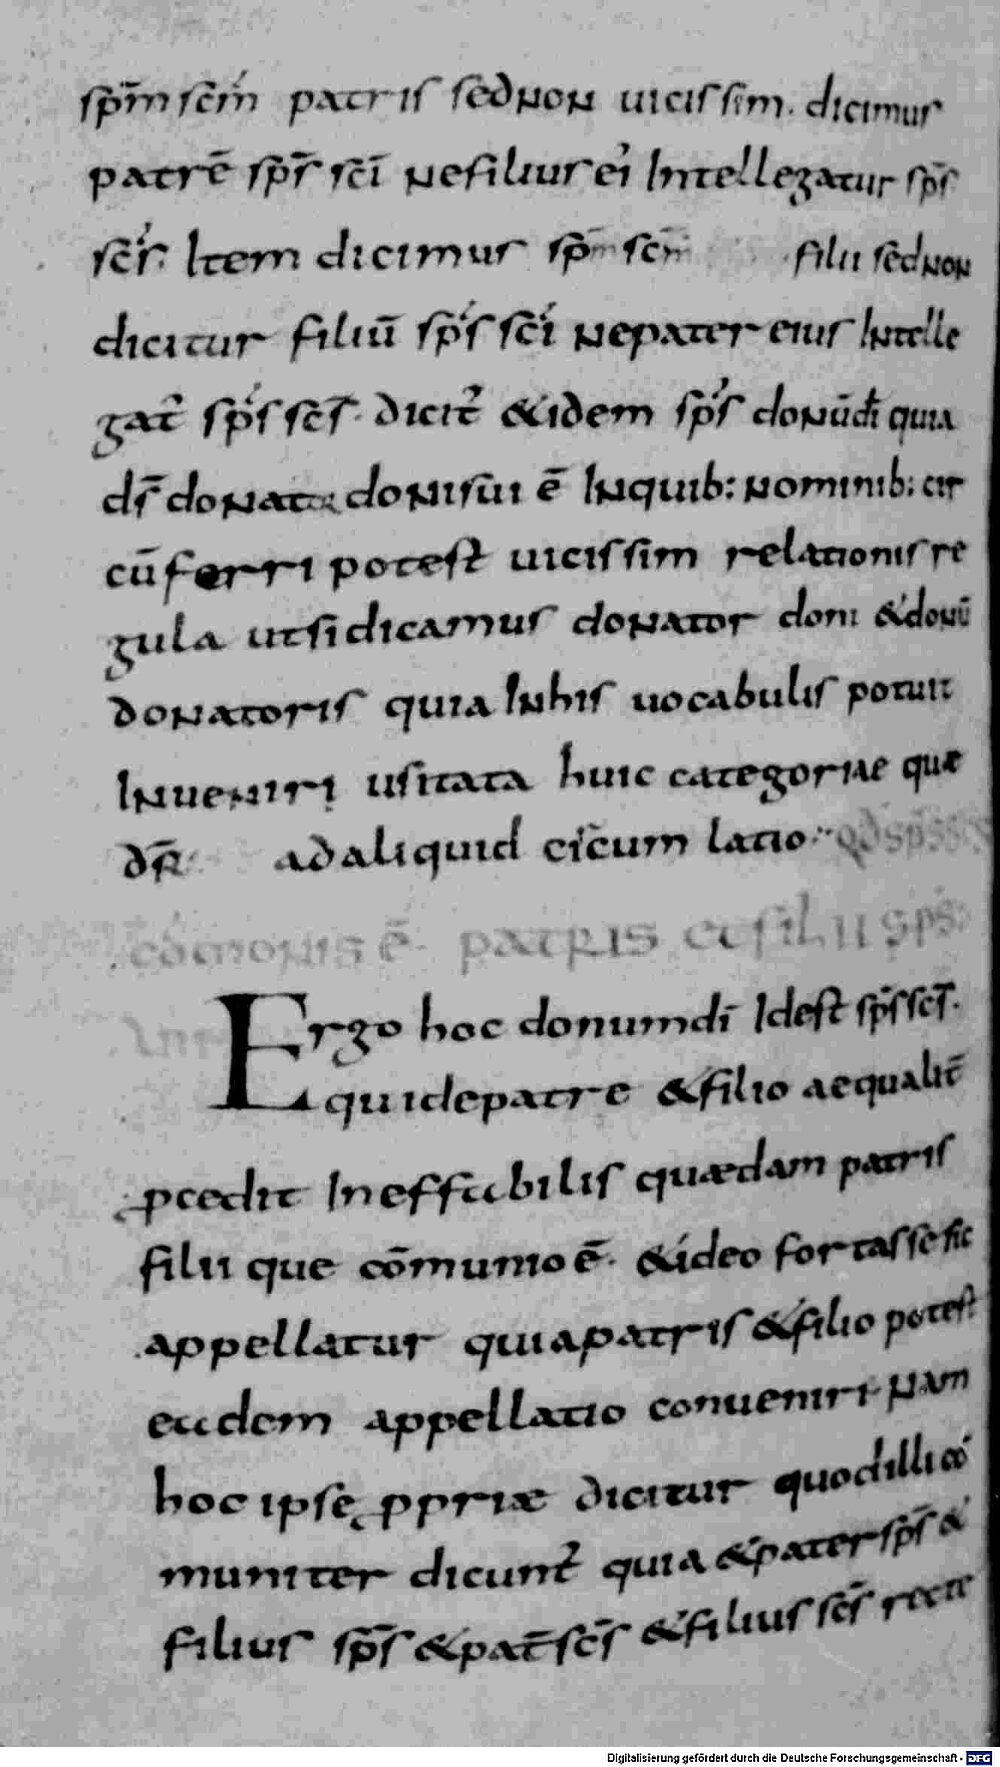 sp̄m sc̄m patris sed non uicissim. dicimus
patrē sp̄s sc̄i ne filius ei intellegatur sp̄s
sc̄s. Item dicimus sp̄m sc̄m filii sed non
dicitur filiū sp̄s sc̄i ne pater eius intelle
gat̄ sp̄s sc̄s. dicit̄ & idem sp̄s donū dī quia
dS̄ donat donis ē Inquib: nominib: cir
cūferri potest uicissim relationis re
gula ut si dicamus donator doni & donū
donatoris quia In his uocabulis potuit
Inueniri usitata huic categoriae quæ
dr̄ ad aliquid circum latio qd sp̄s
cōmonis ē patris et filii sp̄s
Ergo hoc donum dī Idest sp̄s sc̄s.
qui de patre & filio aequalit̄
ꝓcedit Ineffabilis quædam patris
filiique cōmunio ē. & ideo fortasse sic
appellatur quia patris & filio potest
eadem appellatio conueniri. Nam
hoc ipse ꝓpriæ dicitur quod illi cō
muniter dicunt̄ quia & pater sp̄s &
filius sp̄s & pat̄ sc̄s & filius sc̄s recte
Digitalisierung gefördert durch die Deutsche Forschungsgemeinschaft - DFG